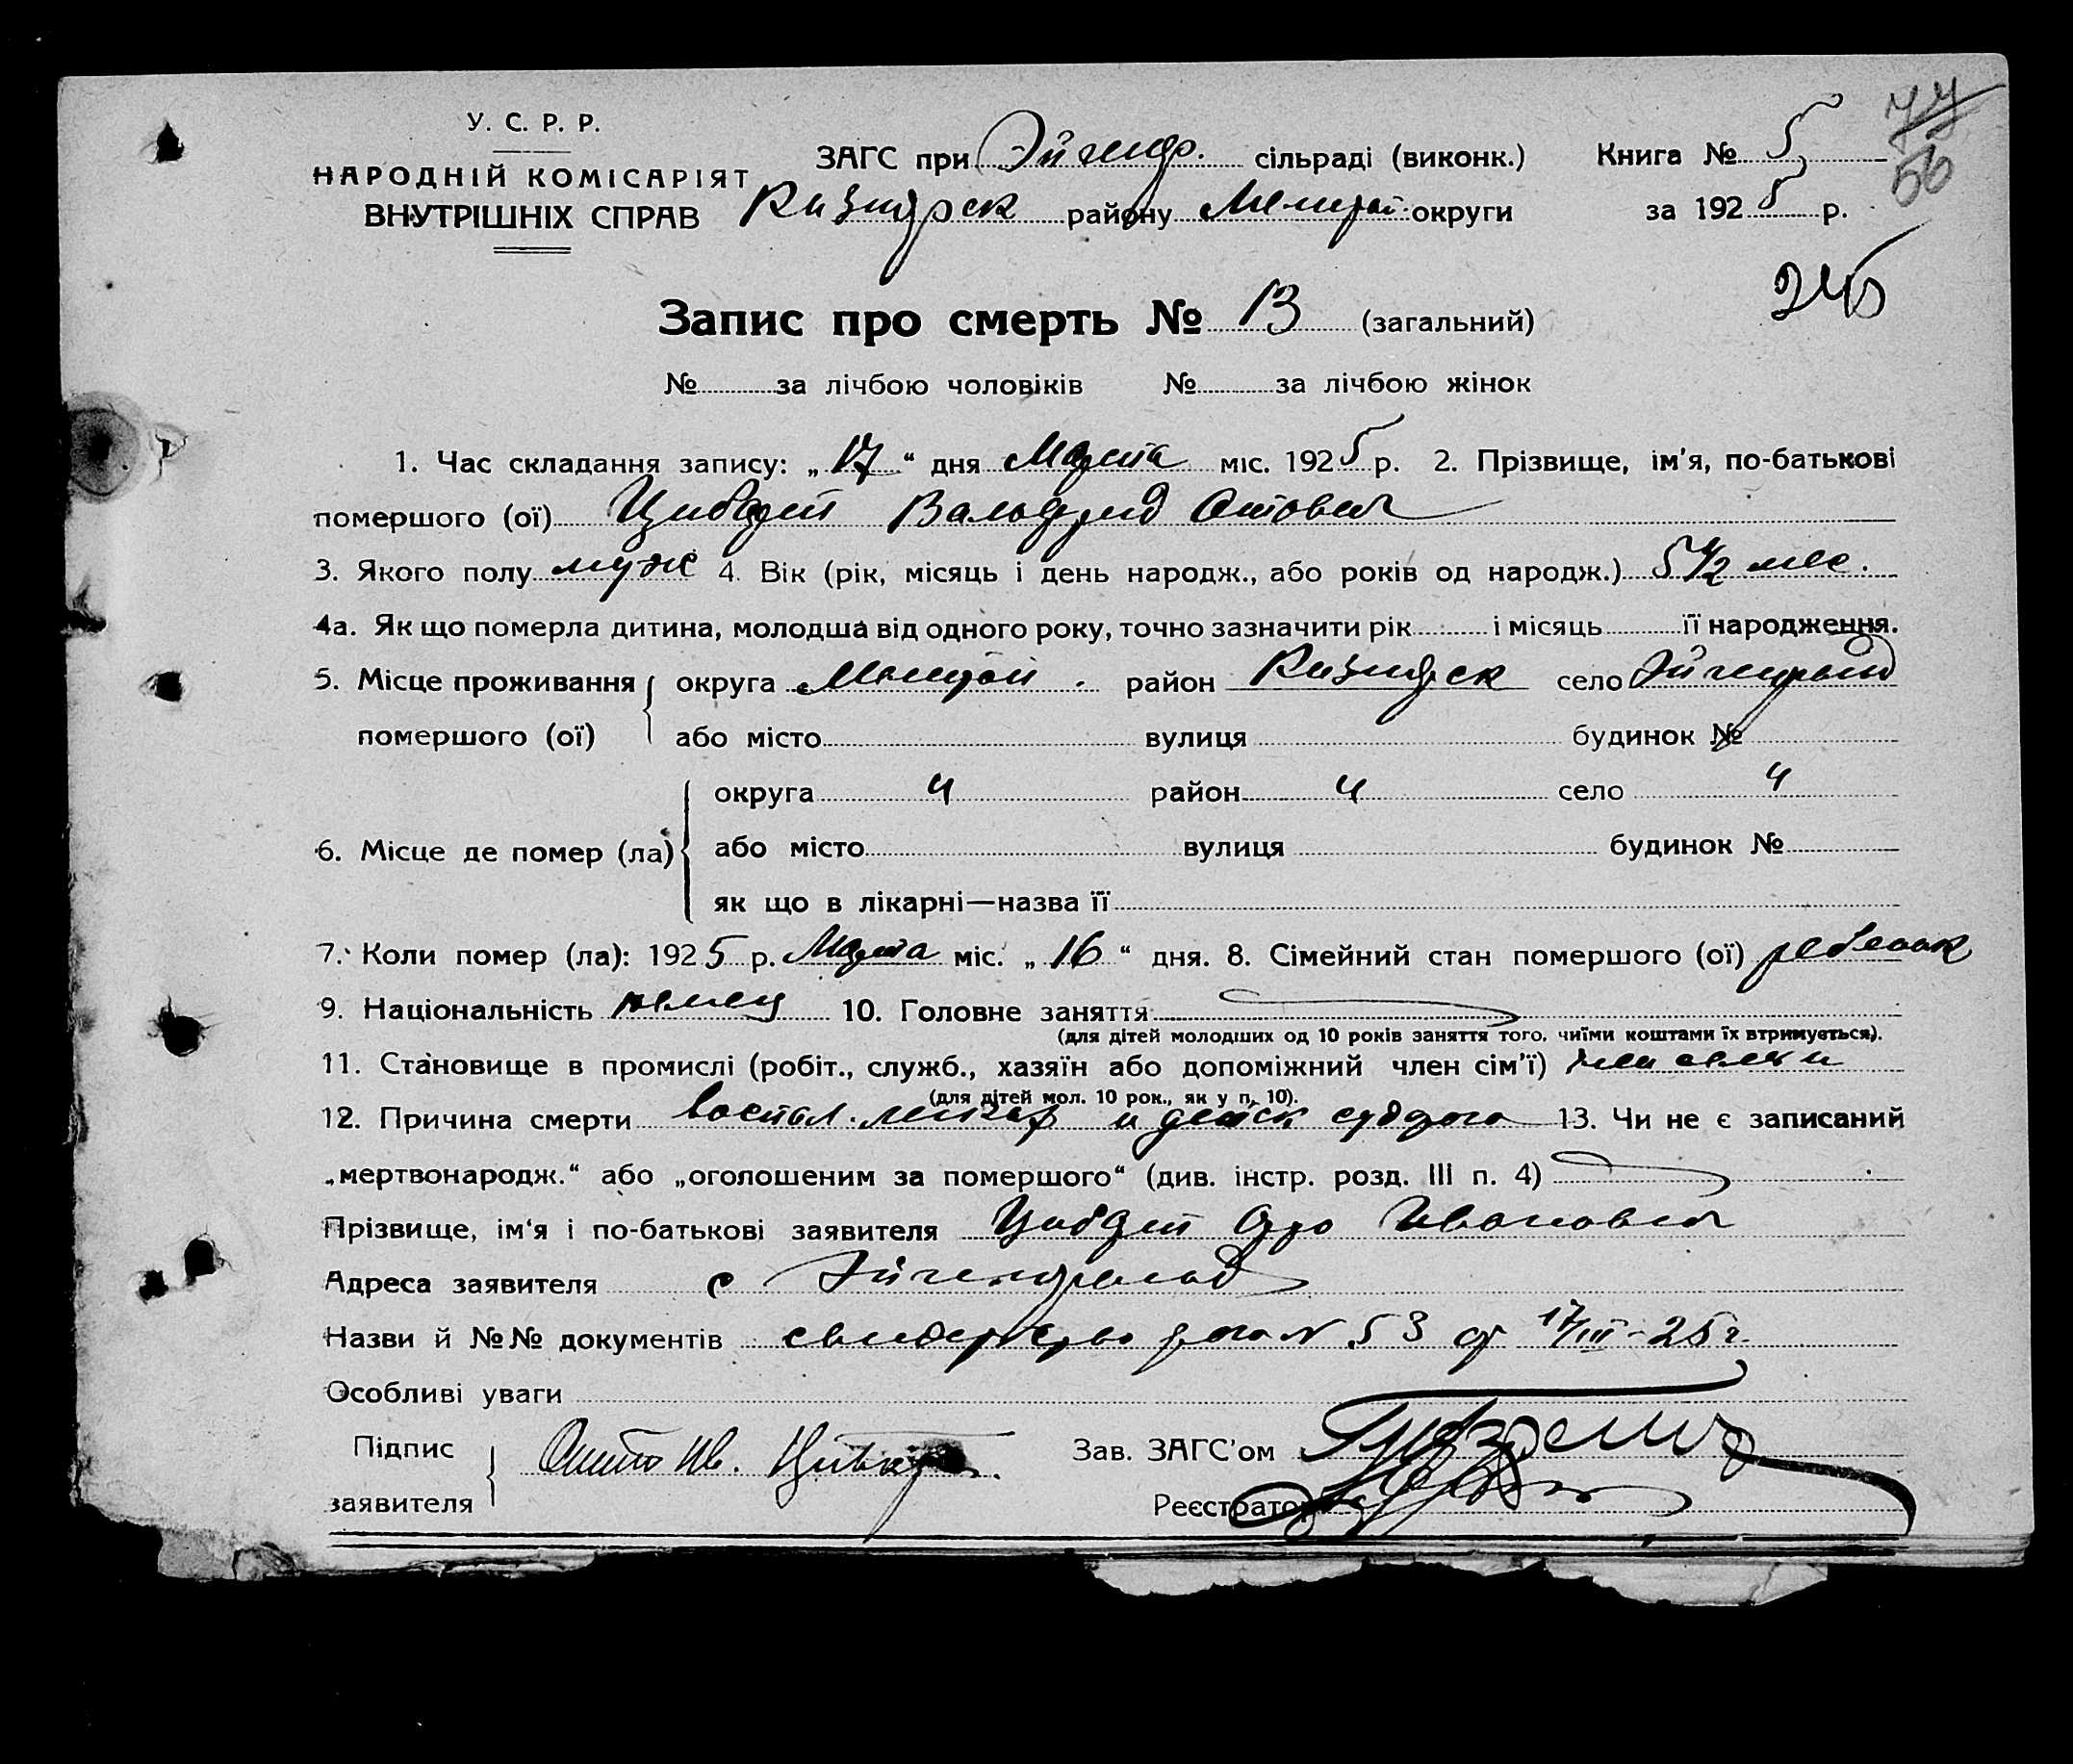 У. С. Р. Р.
НАРОДНІЙ КОМІСАРІЯТ
ВНУТРІШНІХ СПРАВ
ЗАГС при Эйгенф. сільраді (виконк.) Книга № 5
району округи за 1925 р.
56
245
Запис про смерть № 13 (загальний)
№ за лічбою чоловіків № за лічбою жінок
1. Час складання запису: „17“ дня Марта міс. 1925 р. 2. Прізвище, ім'я, по-батькові
помершого (ої) Цибарт Вальфрид Оттович
3. Якого полу муж 4. Вік (рік, місяць і день народж., або років од народж.) 5 1/2 мес.
4а. Як що померла дитина, молодша від одного року, точно зазначити рік і місяць її народження.
5. Місце проживання округа район село Эйгенфельд
помершого (ої) або місто вулиця будинок №
округа ч район ч село ч
6. Місце де помер (ла) або місто вулиця будинок №
як що в лікарні—назва її
7. Коли помер (ла): 1925 р. Марта міс. „16“ дня. 8. Сімейний стан помершого (ої) ребенок
9. Національність немец 10. Головне заняття
(для дітей молодших од 10 років заняття того, чиїми коштами їх втримується).
11. Становище в промислі (робіт., служб., хазяїн або допоміжний член сім'ї) член семьи
(для дітей мол. 10 рок., як у п. 10).
12. Причина смерти воспал. легких и 13. Чи не є записаний
„мертвонародж.“ або „оголошеним за помершого“ (див. інстр. розд. III п. 4)
Прізвище, ім'я і по-батькові заявителя Цибарт Отто Иванович
Адреса заявителя с Эйгенфельд
Назви й №№ документів N 53 от 17/III-25 г.
Особливі уваги
Підпис Отто Ив. Цибарт. Зав. ЗАГС'ом
заявителя Реєстратор